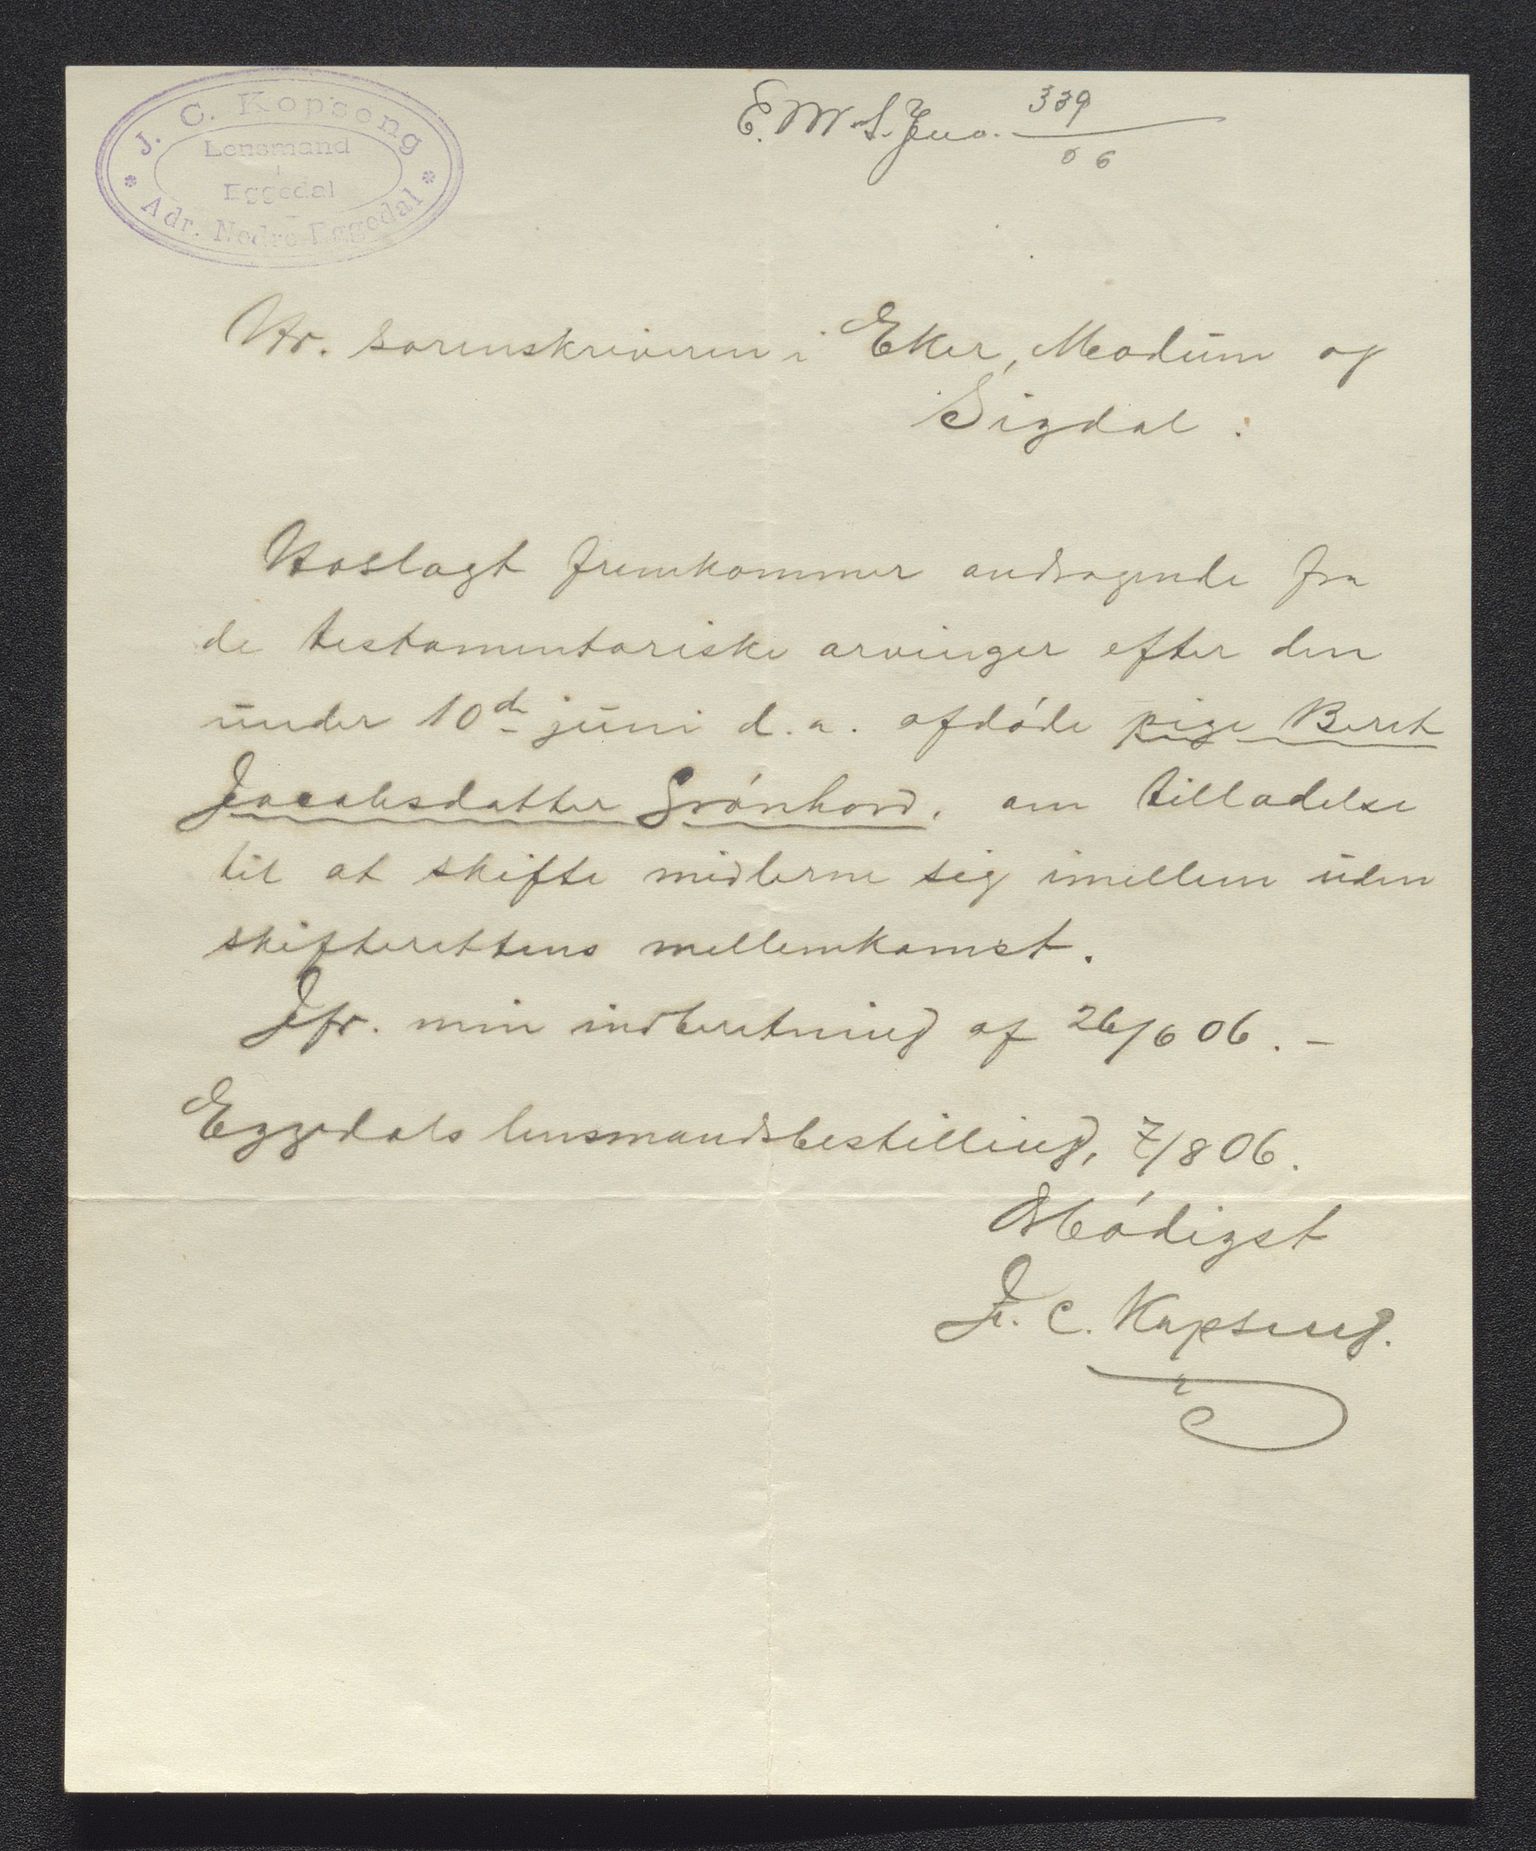 J. C. Kopseng
Lensmand
i
Eggedal
Adr. Nedre Eggedal
E. M. S. Jno. 339/06
Hr. sorenskriveren i Eker, Modum og
Sigdal :
Hoslagt fremkommer andragende fra
de testamentariske arvinger efter den
under 10de juni d. a. afdøde pige Berit
Jacobsdatter Grønhovd, om tilladelse
til at skifte midlerne sig imellem uden
skifterettens mellemkomst.
Jfr. min indberetning af 26/6 06. –
Eggedals lensmandsbestilling, 7/8 06.
Ærbødigst
J. C. Kopseng.